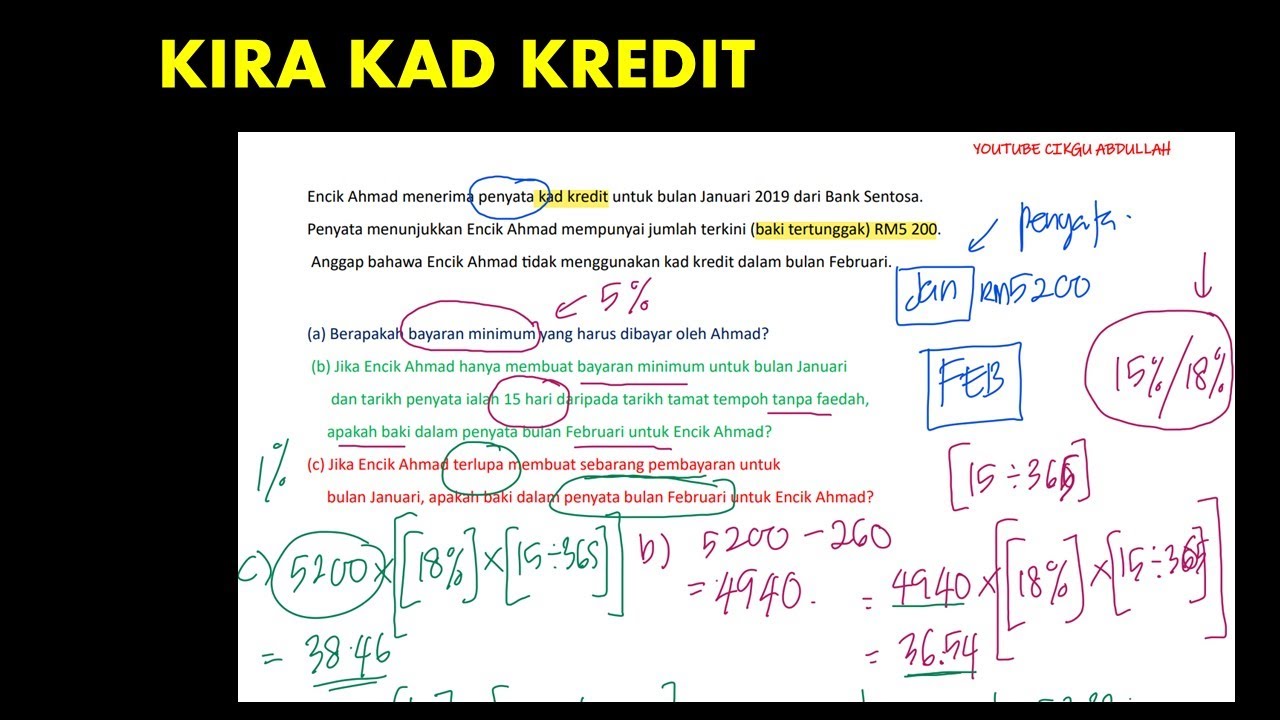 KIRA KAD KREDIT
YOUTUBE CIKGU ABDULLAH
Encik Ahmad menerima penyata kad kredit untuk bulan Januari 2019 dari Bank Sentosa.
Penyata menunjukkan Encik Ahmad mempunyai jumlah terkini (baki tertunggak) RM5 200.
Anggap bahawa Encik Ahmad tidak menggunakan kad kredit dalam bulan Februari.
penyata.
Jan RM5200
5%
(a) Berapakah bayaran minimum yang harus dibayar oleh Ahmad?
(b) Jika Encik Ahmad hanya membuat bayaran minimum untuk bulan Januari
dan tarikh penyata ialah 15 hari daripada tarikh tamat tempoh tanpa faedah,
apakah baki dalam penyata bulan Februari untuk Encik Ahmad?
FEB
15%/18%
1%
(c) Jika Encik Ahmad terlupa membuat sebarang pembayaran untuk
bulan Januari, apakah baki dalam penyata bulan Februari untuk Encik Ahmad?
[15÷365]
c) 5200×[[18%]×[15÷365]]
= 38.46
b) 5200-260
= 4940.
= 4940×[[18%]×[15÷365]]
= 36.54